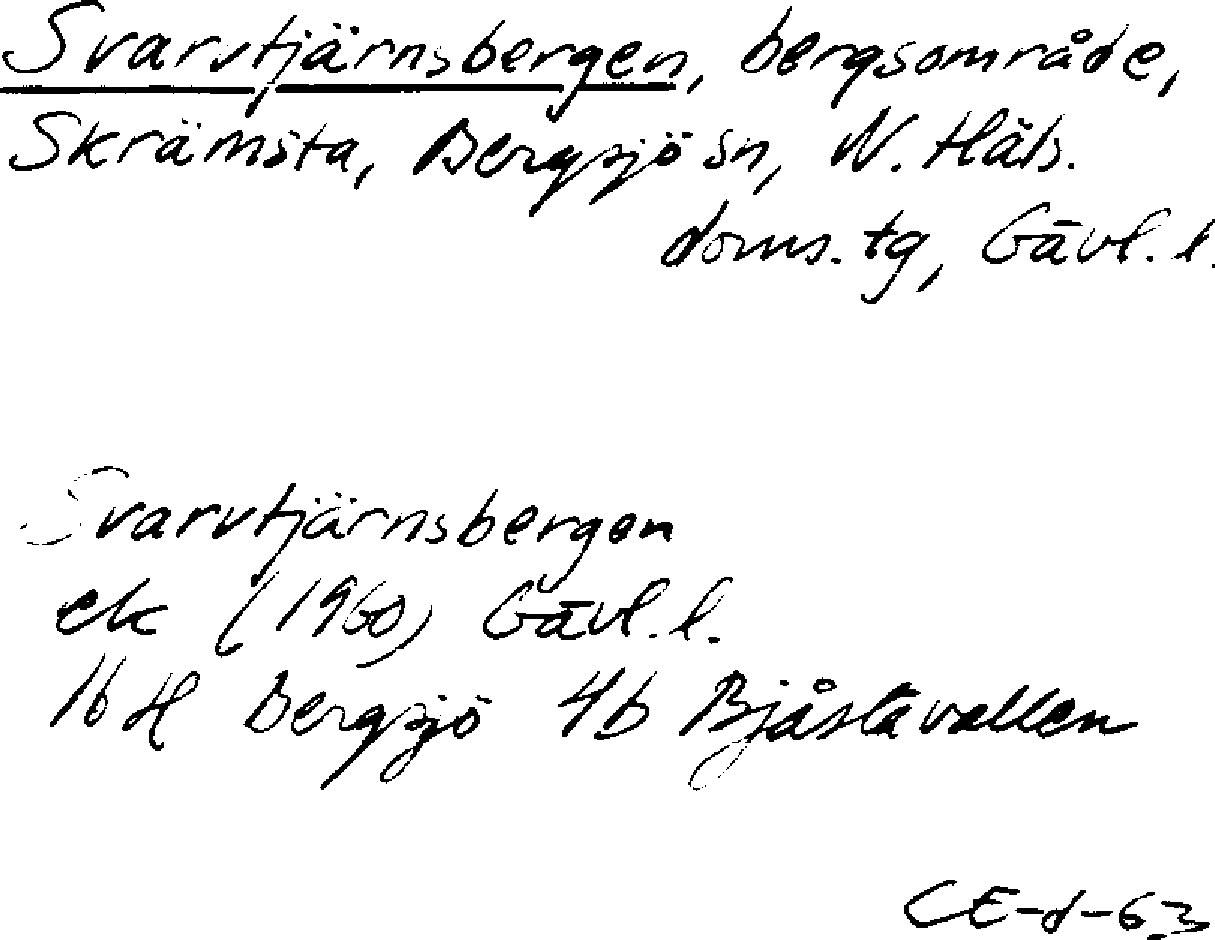 Svarvtjärnsbergen, bergsområde,
Skrämsta, Bergsjö sn, N. Häls.
doms. tg, Gävl. l.
Svarvtjärnsbergen
ek (1960) Gävl. l.
16H Bergsjö 4b Bjåstavallen
CE-d-63